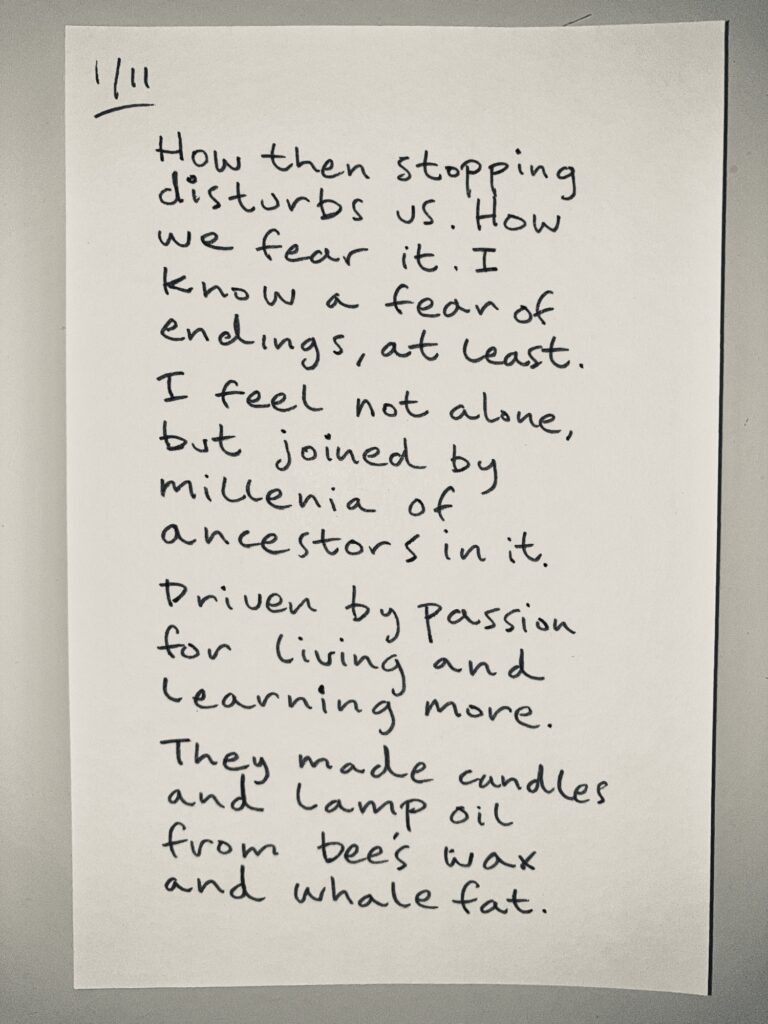 1/11
How then stopping
disturbs us. How
we fear it. I
know a fear of
endings, at least.
I feel not alone,
but joined by
millenia of
ancestors in it.
Driven by passion
for living and
learning more.
They made candles
and lamp oil
from bee's wax
and whale fat.